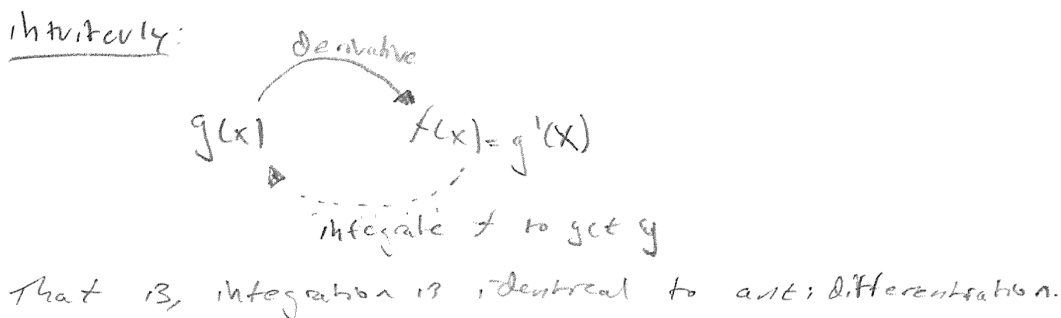 intuitevly:
derivative
g(x) f(x) = g'(x)
integrate f to get g
That is, integration is identical to anti differentiation.